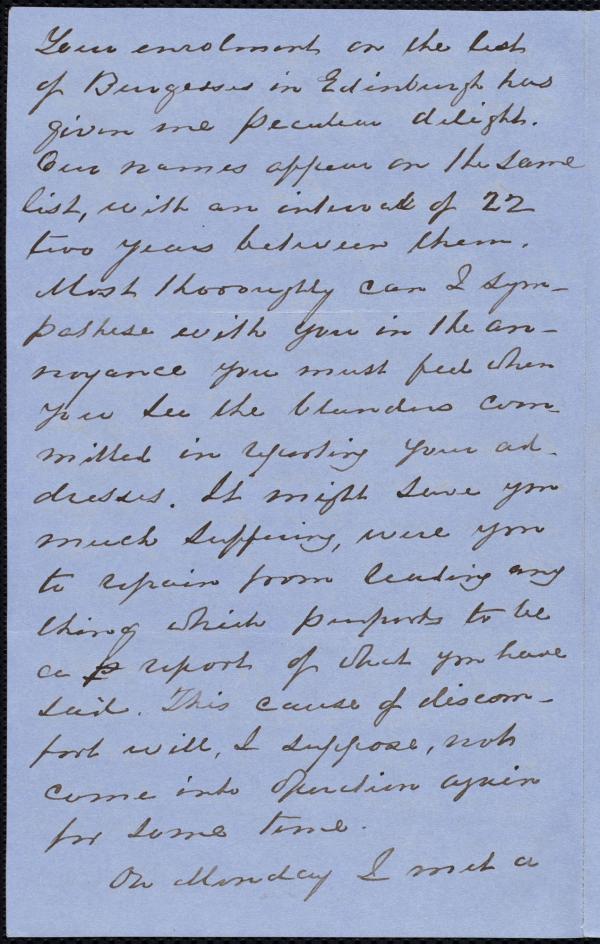 Your enrolment on the list
of Burgesses in Edinburgh has
given me peculiar delight.
Our names appear on the same
list, with an interval of 22
two years between them.
Most thoroughly can I sym-
pathise with you in the an-
noyance you must feel when
you see the blunders com-
mitted in reporting your ad-
dresses. It might save you
much suffering, were you
to refrain from reading any
thing which purports to be
a report of what you have
said. This cause of discom-
fort will, I suppose, not
come into operation again
for some time.
On Monday I met a